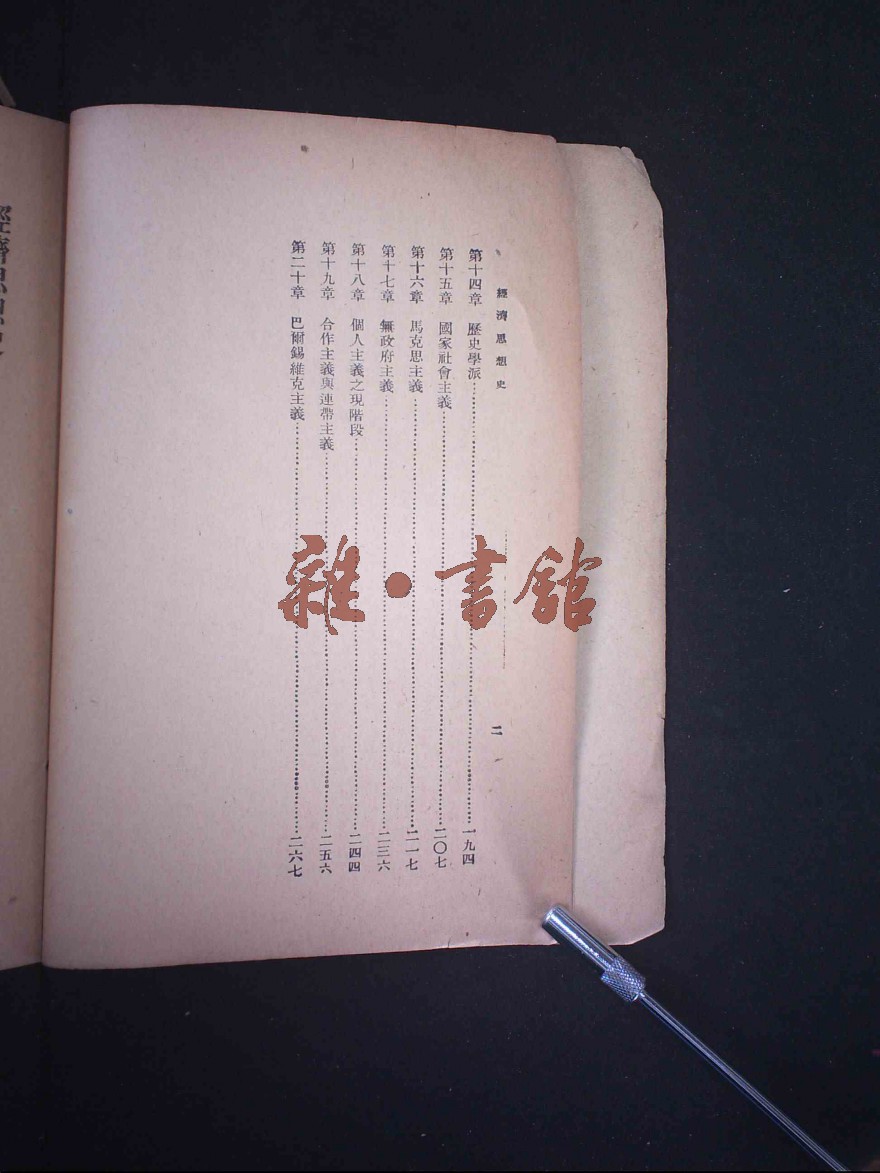 經濟思想史
二
第十四章 歷史學派……一九四
第十五章 國家社會主義……二〇七
第十六章 馬克思主義……二一七
第十七章 無政府主義……二三六
第十八章 個人主義之現階段……二四四
第十九章 合作主義與連帶主義……二五六
第二十章 巴爾錫維克主義……二六七
雜·書館